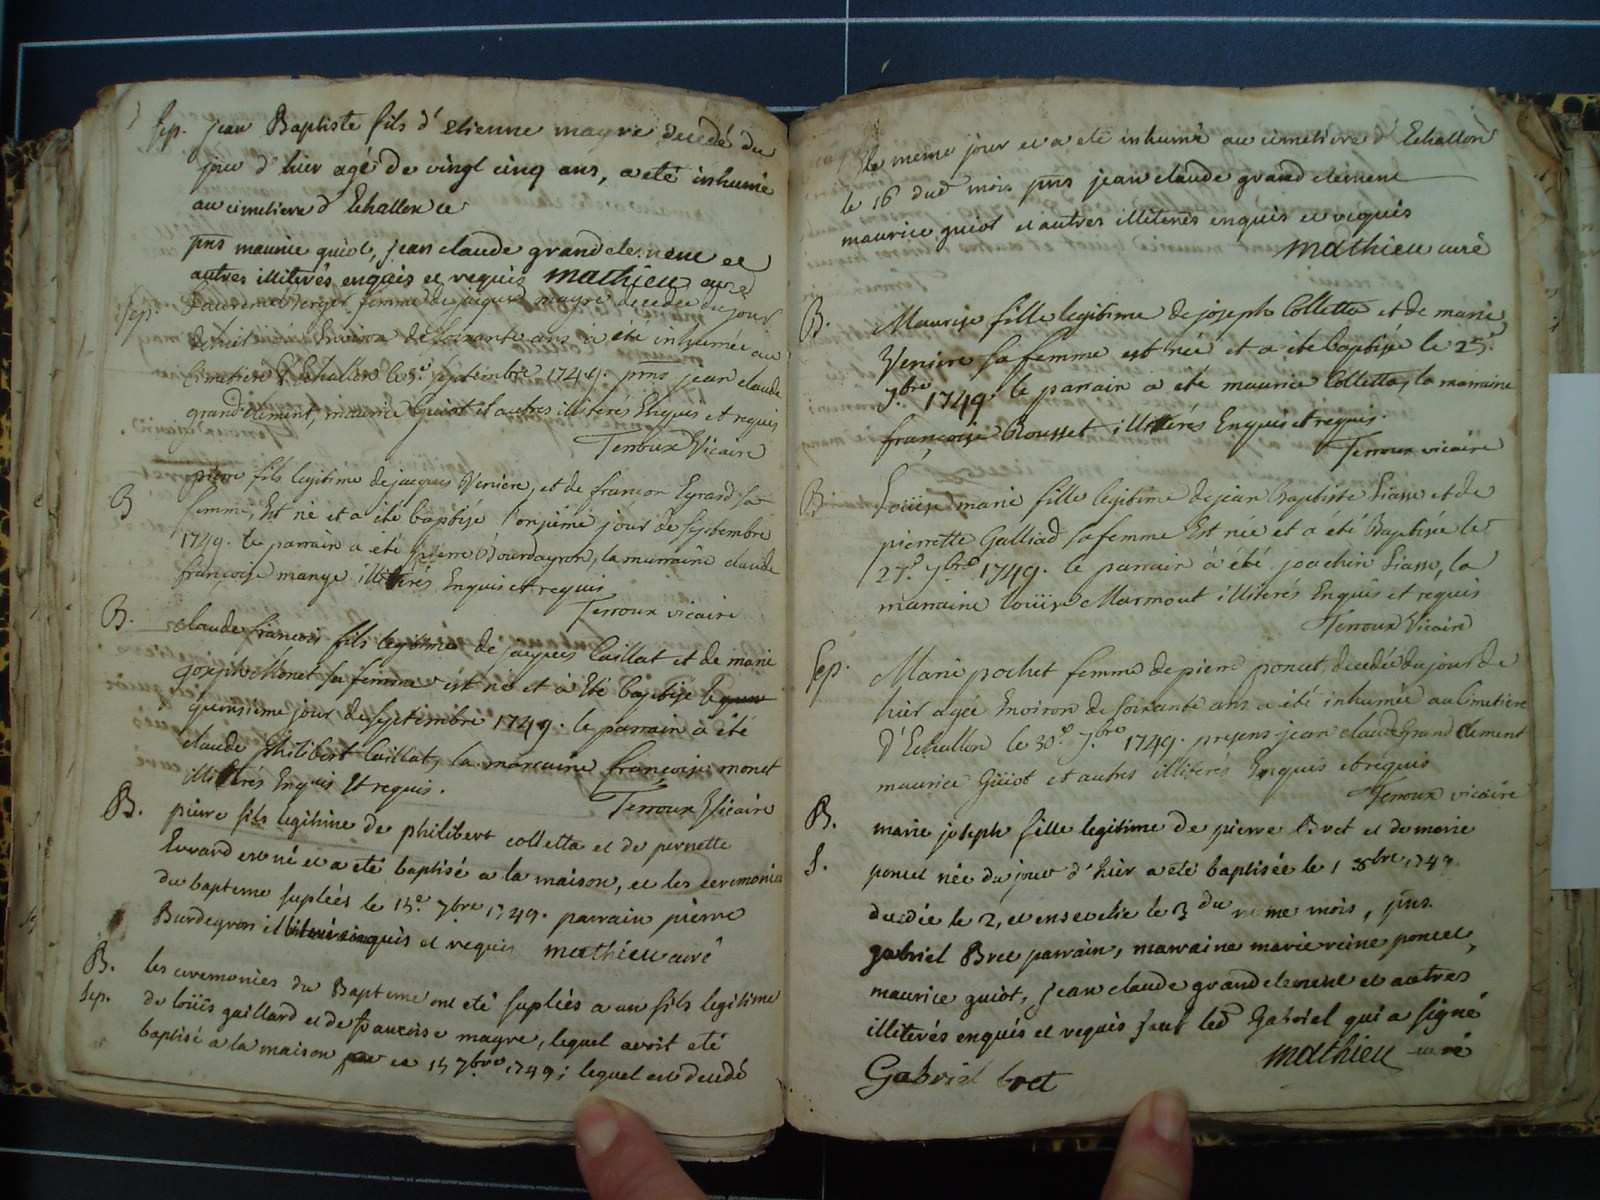 Sep. jean Baptiste fils d' etienne mayre decedé du
jour d' hier agé de vingt cinq ans, a eté inhumé
au cimetiere d' Echallon ce
pns maurice guiot, jean claude grandclement et
autres illiterés enquis et requis mathieu curé
Sep. Laurence Verger femme de jaques mayre decedée du jour
environ de soixante ans a été inhumée au
Cimetiere d' Echallon le 8e septembre 1749. pns jean claude
grandclement, maurice Guiot et autres illiterés Enquis et requis
Terroux Vicaire
B pierre fils legitime de jacques Veniere, et de françon Evrard sa
femme, Est né et a été baptisé l'onzième jour de septembre
1749. le parrain a été pierre Bourdeyron, la marraine claude
françoise mayre illiterés Enquis et requis
Terroux vicaire
B. claude francois fils legitime de jacques Caillat et de marie
joseph Monet sa femme est né et a Eté baptisé le
quinsieme jour de septembre 1749. le parrain a été
claude Philibert Caillat, la marraine françoise monet
illiterés Enquis Et requis.
Terroux Vicaire
B. pierre fils legitime de philibert colletta et de pernette
Evrard est né et a eté baptisé a la maison, et les ceremonies
du bapteme supleés le 15e 7bre 1749. parrain pierre
Burdeyron illiterés enquis et requis mathieu curé
B. les ceremonies du Bapteme ont eté supleés a un fils legitime
Sep. de loüis gaillard et de francoise mayre, lequel avoit eté
baptisé a la maison ce 15 7bre 1749; lequel est decedé
le meme jour et a eté inhumé au cimetiere d' Echallon
le 16 dud mois pns jean claude grandclement
maurice guiot et autres illiterés enquis et requis
mathieu curé
B. Maurise fille legitime de joseph Colletta et de marie
Veniere sa femme est née et a été baptisée le 25e
7bre 1749. le parrain a été maurice Colletta, la marraine
françoise Rousset illiterés Enquis et requis.
Terroux vicaire
B Loüise marie fille legitime de jean Baptiste Liasse et de
pierrette Galliad sa femme Est née et a été Baptisée le
27e 7bre 1749. le parrain a été joachin Liasse, la
marraine Loüise Marmout illiterés Enquis et requis
Terroux Vicaire
Sep. Marie pochet femme de pierre poncet, decedée du jour de
hier agée Environ de soixante ans a été inhumée au Cimetiere
d' Echallon le 30e 7bre 1749. presens jean claude Grand Clement
maurice Guiot et autres illiterés Enquis et requis
Terroux vicaire
B. marie joseph fille legitime de pierre Bret et de marie
S. poncet née du jour d' hier a eté baptisée le 1 8bre 1749.
decedée le 2, et ensevelie le 3 du meme mois, pns.
gabriel Bret parrain, marraine marie reine poncet,
maurice guiot, jean claude grandclement et autres
illiterés enquis et requis sauf led Gabriel qui a signé
mathieu curé
Gabriel bret